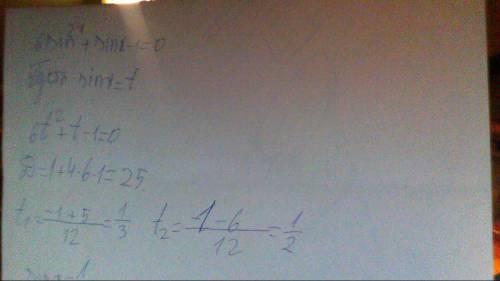 6sin²x+sinx-1=0
sinx=t
6t²+t-1=0
D=1+4·6·1=25
t₁=\frac{-1+5}{12}=\frac{1}{3} t₂=\frac{-1-6}{12}=\frac{1}{2}